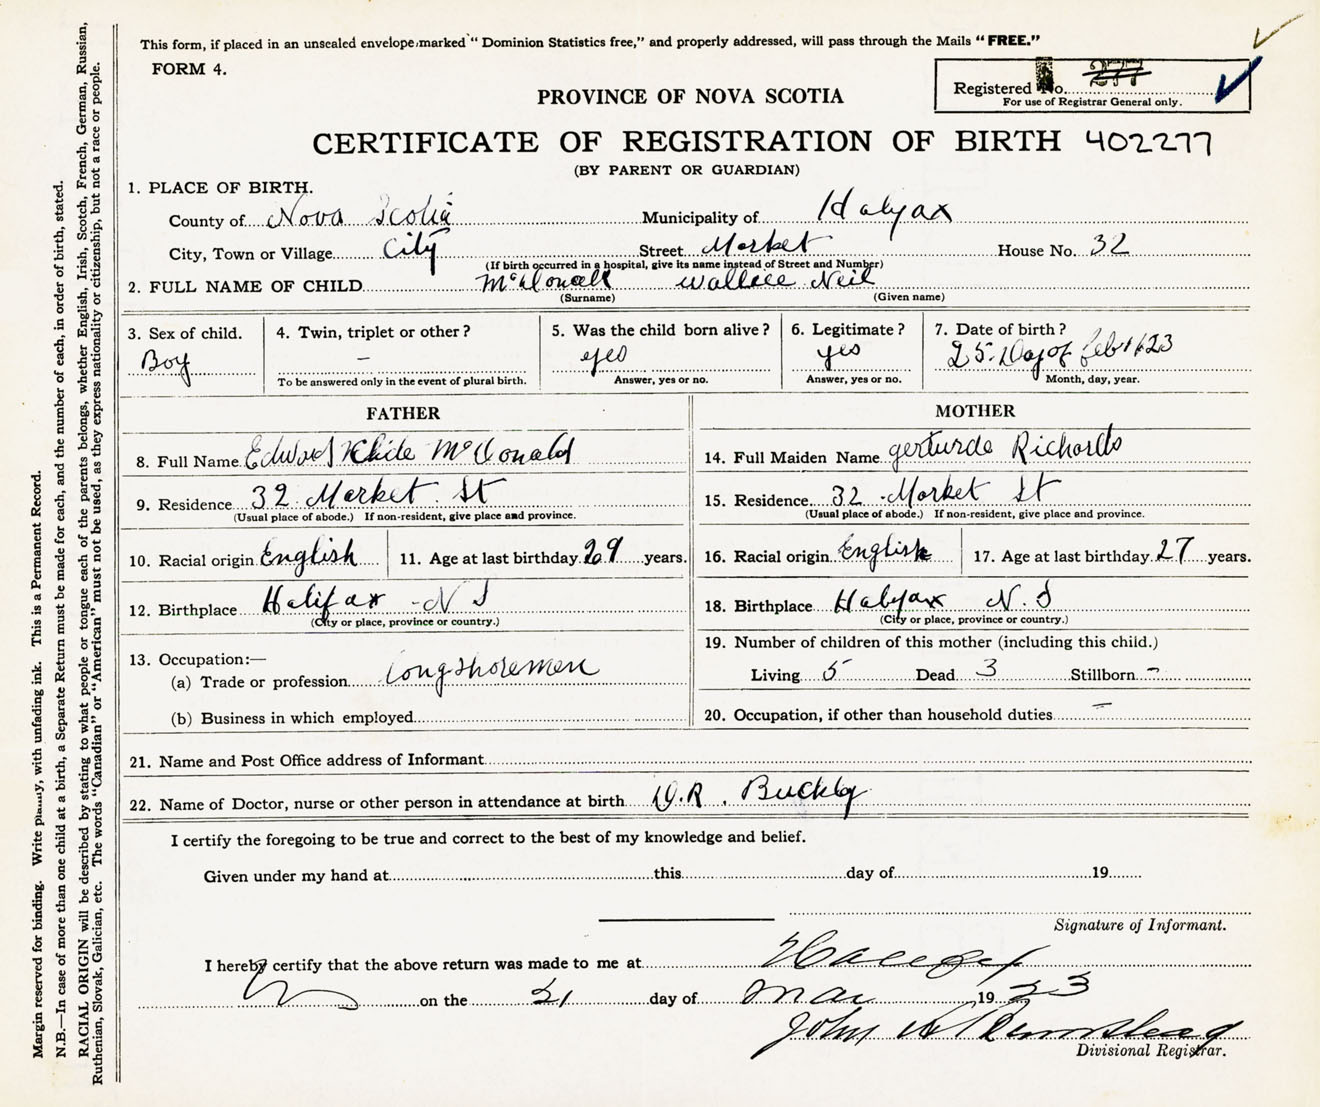 This form, if placed in an unsealed envelope, marked "Dominion Statistics free," and properly addressed, will pass through the Mails "FREE."
FORM 4.
Registered No. 277
For use of Registrar General only.
PROVINCE OF NOVA SCOTIA
CERTIFICATE OF REGISTRATION OF BIRTH 402277
(BY PARENT OR GUARDIAN)
1. PLACE OF BIRTH.
County of Nova Scotia Municipality of Halifax
City, Town or Village City Street Market House No. 32
(If birth occurred in a hospital, give its name instead of Street and Number)
2. FULL NAME OF CHILD McDonald Wallace Neil
(Surname) (Given name)
3. Sex of child. 4. Twin, triplet or other? 5. Was the child born alive? 6. Legitimate? 7. Date of birth?
Boy — yes yes 25. Day of Feb 1923
To be answered only in the event of plural birth. Answer, yes or no. Answer, yes or no. Month, day, year.
FATHER
8. Full Name Edward White McDonald
9. Residence 32 Market St
(Usual place of abode.) If non-resident, give place and province.
10. Racial origin English 11. Age at last birthday 29 years.
12. Birthplace Halifax N S
(City or place, province or country.)
13. Occupation:—
(a) Trade or profession Longshoremen
(b) Business in which employed
MOTHER
14. Full Maiden Name gerturde Richards
15. Residence 32 Market St
(Usual place of abode.) If non-resident, give place and province.
16. Racial origin English 17. Age at last birthday 27 years.
18. Birthplace Halifax N. S
(City or place, province or country.)
19. Number of children of this mother (including this child.)
Living 5 Dead 3 Stillborn -
20. Occupation, if other than household duties —
21. Name and Post Office address of Informant
22. Name of Doctor, nurse or other person in attendance at birth D.R. Buckley
I certify the foregoing to be true and correct to the best of my knowledge and belief.
Given under my hand at this day of 19
Signature of Informant.
I hereby certify that the above return was made to me at Halifax
on the 21 day of Mar 1923
John A
Divisional Registrar.
Margin reserved for binding. Write plainly, with unfading ink. This is a Permanent Record.
N.B.—In case of more than one child at a birth, a Separate Return must be made for each, and the number of each, in order of birth, stated.
RACIAL ORIGIN will be described by stating to what people or tongue each of the parents belongs, whether English, Irish, Scotch, French, German, Russian,
Ruthenian, Slovak, Galician, etc. The words "Canadian" or "American" must not be used, as they express nationality or citizenship, but not a race or people.